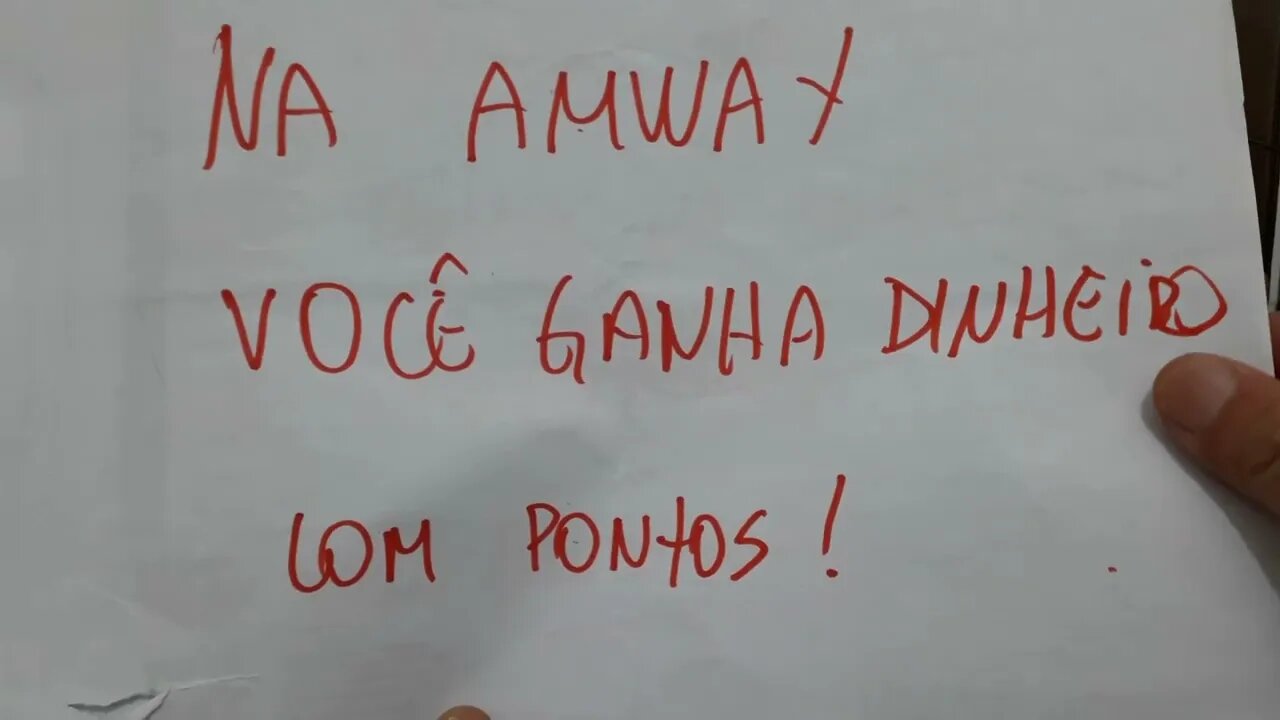 NA AMWAY
VOCÊ GANHA DINHEIRO
COM PONTOS!